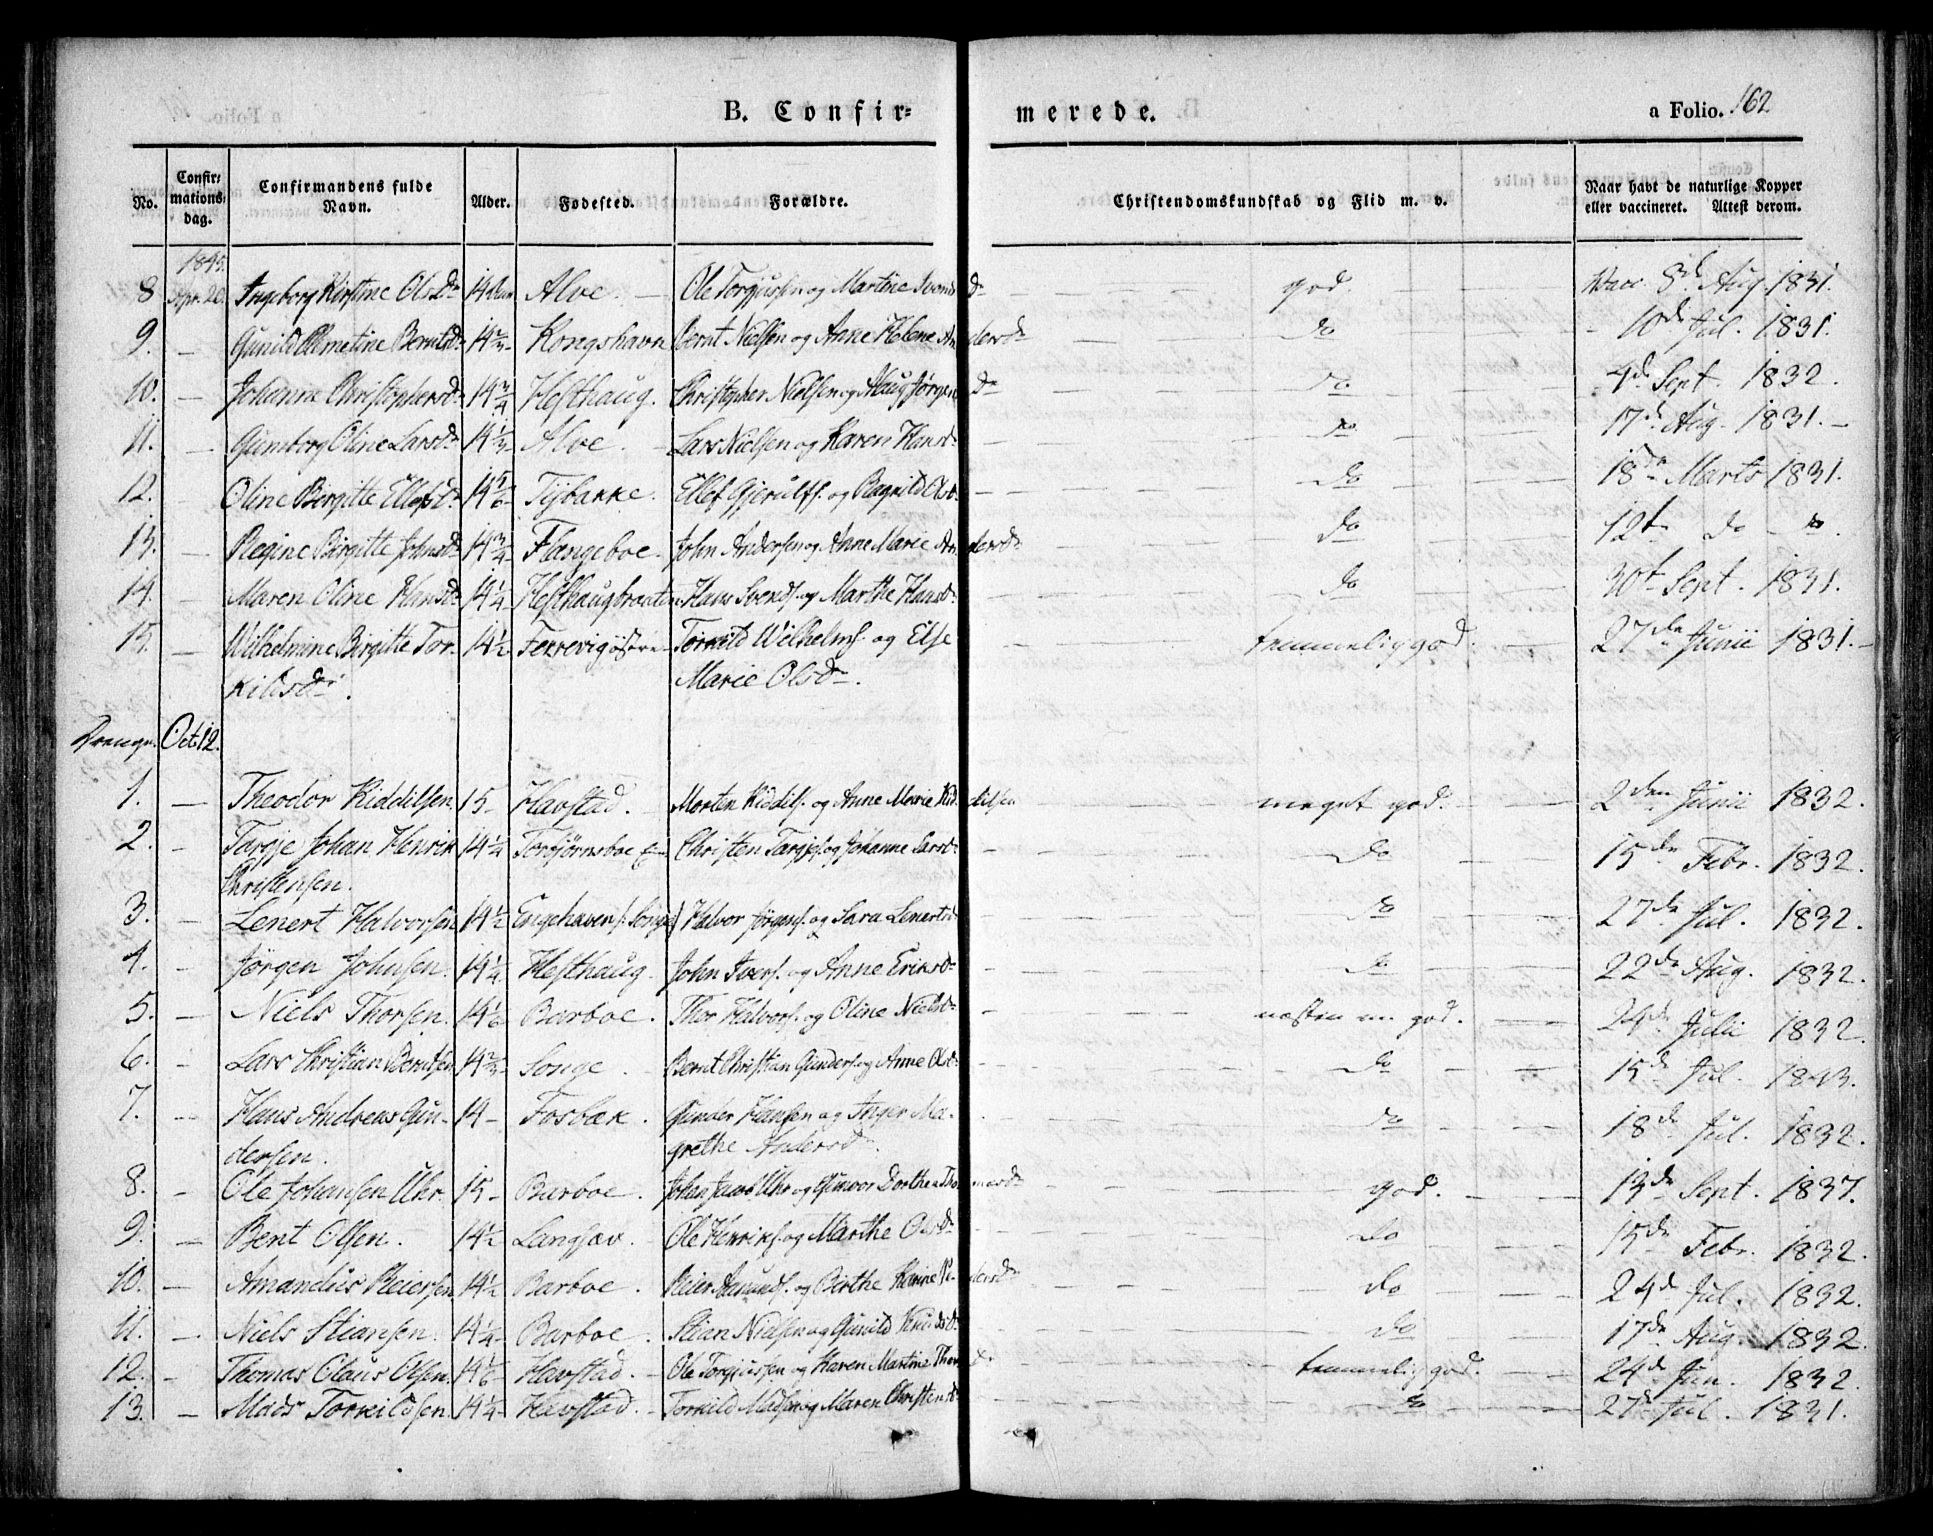 B. Confir= merede. a Folio. 162
No. Confir= mations= dag. Confirmandens fulde Navn. Alder. Fødested. Forældre. Christendomskundskab og Flid m. v. Naar havt de naturlige Kopper eller vaccineret. Attest derom.
1845.
8 Apr. 20. Ingeborg Kirstine Olsdr 14 Alve. — Ole Torgjussen og Martine — — god — Vacc. 8de Aug. 1831.
9. — Gunild Bernts dr 14 2/3 Kongshavn Bernt Nielsen og Anne Helene Andersdr — — do — - 10de Jul. 1831.
10. — Johanne Christophersdr 14 3/4 Hesthaug. Christopher Nielsen og — do — 4de Sept. 1832.
11. — Gunborg Oline Larsdr 14 1/3 Alve. — Lars Nielsen og Karen Hansdr — do — 17de Aug. 1831. —
12. Oline Birgitte Ellefsdr 14 5/6 Tybakke. Ellef Gjerulfs. og Ragnild Olsdr — do — 18de Marts 1831.
13. — Regine Birgitte Johnsdr 14 3/4 Flangeboe. John Andersen og Anne Marie Andersdr do 12te do — do.
14. — Maren Oline Hansdr 14 1/4 Hesthaugbraaten Hans Svends. og Marthe Hansdr. — do — 30te Sept. 1831.
15. — Wilhelmine Birgitte Tor- 14 1/2 Færevigøstre — Torkild Wilhelms. og Else — — temmelig god. — 27de Junii 1831. —
kildsdr. Marie Olsdr.
Drenge. Oct. 12.
1. — Theodor Kiddilsen. 15 - Havstad. — Morten Kiddils. og Anne Marie Kiddilsen — — meget god. — 2den Junii 1832.
2. - Targje Johan Henrik 14 1/4 Torbjørnsboe Christen Targjes. og Johanne Larsdr — do — 15de Febr. 1832.
Christensen.
3. - Lenert Halvorsen 14 1/2 Engehaven (: Songe) Halvor Jørgens. og Sara Lenertsdr — do — 27de Jul. 1832.
4. - Jørgen Johnsen. 14 1/4 Hesthaug. John Ivers. og Anne Eriksdr — do — 22de Aug. 1832.
5. — Niels Thorsen. 14 1/6 Barboe. Thor Halvors. og Oline Nielsdr — — næsten m. god. — 24de Julii 1832.
6. - Lars Christian Berntsen 14 2/3 Songe. Bernt Christian Gunders. og Anne Olsdr — do — 15de Jul. 1843.
7. — Hans Andreas Gun- 14 - Fosbæk. Gunder Hansen og Inger Ma- do 18de Jul. 1832.
dersen. grethe Andersdr.
8. - Ole Johansen Uhr. 15 - Barboe. Johan Uhr og Gunvor Dorthea god. — 13de Sept. 1837.
9. — Bent Olsen. 14 1/2 Langsæv. Ole Henriks. og Marthe Olsdr — do — 15de Febr. 1832.
10. — Amandus Reiersen 14 1/2 Barboe. Reier Aamunds. og Berthe Karine — — do — 24de Jul. 1832.
11. — Niels Stiansen. 14 1/4 Barboe. Stian Nielsen og Gunild Knudsdr — do — 17de Aug. 1832.
12. — Thomas Claus Olsen. 14 1/6 Havstad. — Ole Torgjussen og Karen Martine — temmelig god. — 24de Jun. 1832.
13. — Mads Torkildsen. 14 1/4 Havstad. — Torkild Madsen og Maren Christensdr — do — 27de Jul. 1831.